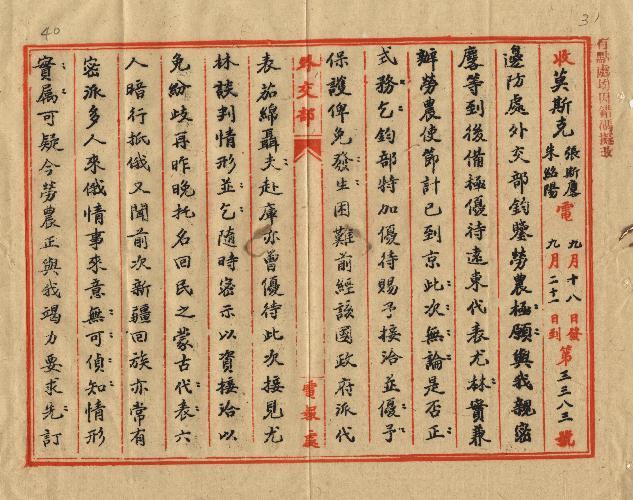 31
有點處均因錯碼擬改
收莫斯克 張斯麐 朱紹陽 電 九月十八日發 九月二十二日到 第三三八三號
邊防處外交部鈞鑒勞農極願與我親密
麐等到後備極優待遠東代表尤林實兼
辦勞農使節計已到京此次無論是否正
式務乞鈞部特加優待賜予接洽並優予
保護俾免發生困難前經該國政府派代
外交部 電報處
表茄綿聶夫赴庫亦曾優待此次接見尤
林談判情形並乞隨時密示以資接洽以
免紛歧再昨晚托名回民之蒙古代表六
人暗行抵俄又聞前次新疆回族亦常有
密派多人來俄情事來意無可偵知情形
實属可疑今勞農正與我竭力要求先訂
40